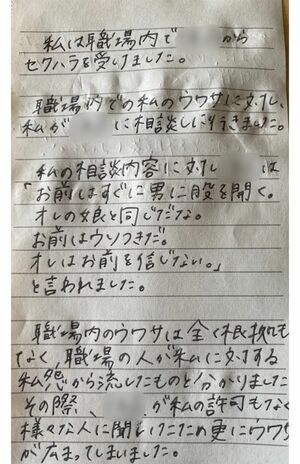 私は職場内で から
セクハラを受けました。
職場内での私のウワサに対し、
私が に相談しに行きました。
私の相談内容に対し は
「お前はすぐに男に股を開く。
オレの娘と同じだな。
お前はウソつきだ。
オレはお前を信じない。」
と言われました。
職場内のウワサは全く根拠も
なく、職場の人が私に対する
私怨から流したものと分かりました
その際、 が私の許可もなく
様々な人に聞いたため更にウワサ
が広まってしまいました。